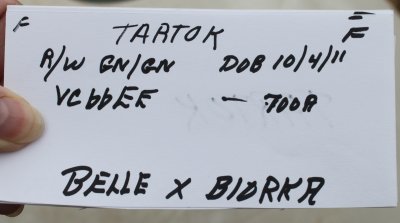 F TARTOK F
R/W GN/GN DOB 10/4/11
VCbbEE - 700A
BELLE X BIORKA